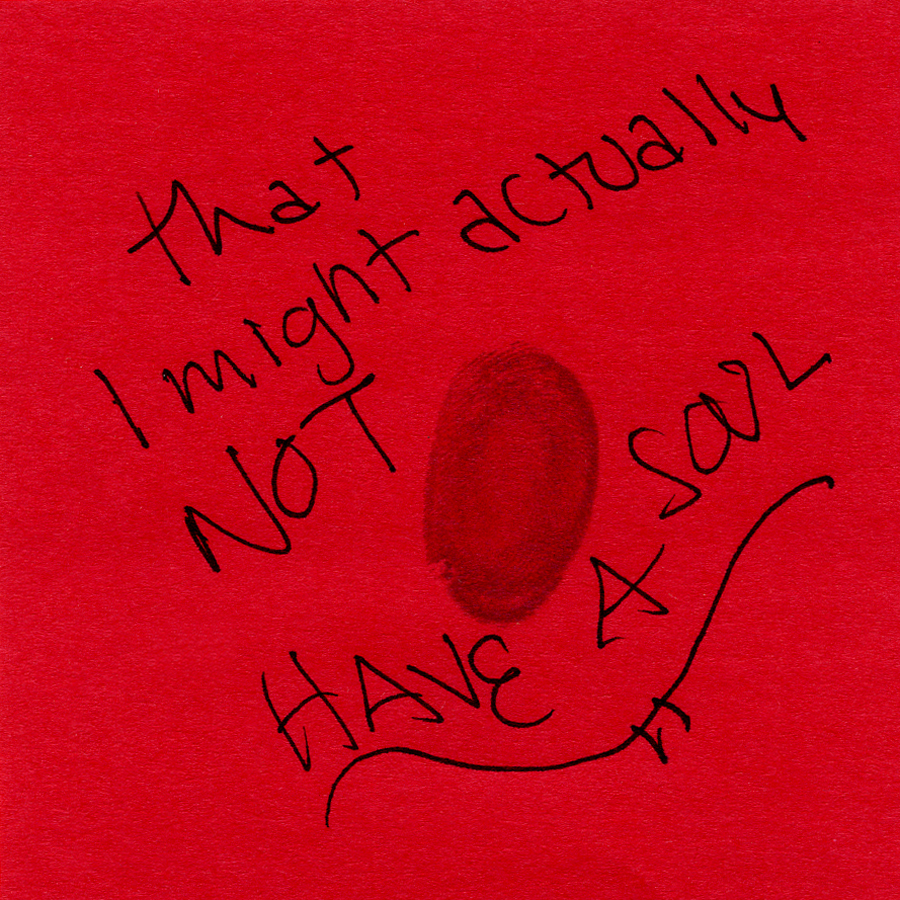 that
I might actually
NOT
HAVE A SOUL